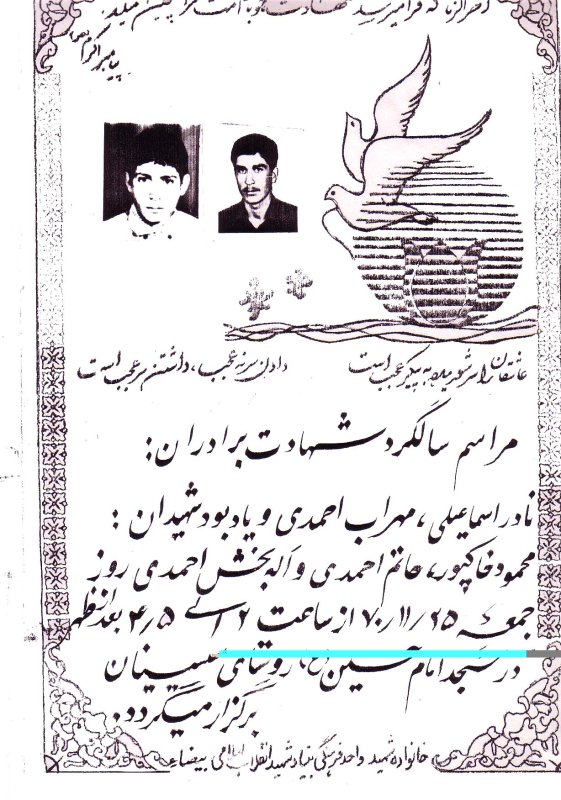 آخرالزمان که فرا میرسد شهادت خوبان امت مرا گلچین میکند
پیامبر اکرم (ص)
عاشقان را سر شوریده به پیکر عجب است دادن سر نه عجب، داشتن سر عجب است
مراسم سالگرد شهادت برادران:
نادر اسماعیلی، مهراب احمدی و یادبود شهیدان :
محمود خاکپور، حاتم احمدی و اله بخش احمدی روز
جمعه ۷۰/۱۱/۲۵ از ساعت ۲ الی ۴/۵ بعد از ظهر
در مسجد امام حسین (ع) روستای
برگزار میگردد.
خانواده شهید واحد فرهنگی بنیاد شهید انقلاب اسلامی بیضاء